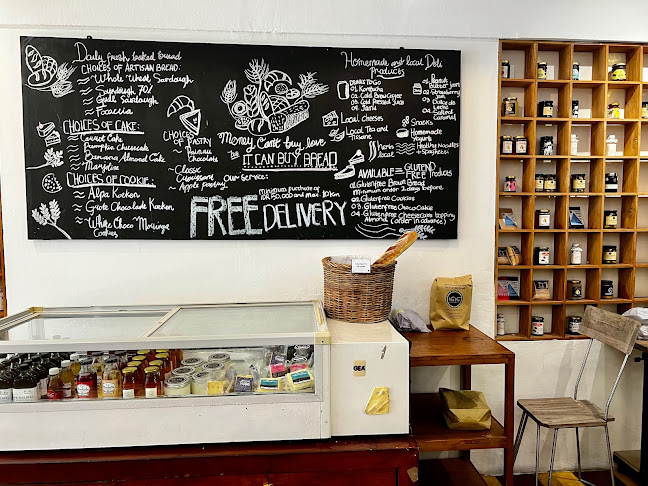 Daily fresh baked bread
CHOICES OF ARTISAN BREAD:
Whole Wheat Sourdough
Sourdough 70%
Garlic Sourdough
Foccacia
CHOICES OF CAKE:
Carrot Cake
Pumpkin Cheesecake
Banana Almond Cake
CHOICES OF COOKIE:
White Choco Moringa
Cookies
CHOICES
OF PASTRY
Chocolate
Classic
Croissant
Apple pastry
Money Can't buy love,
IT CAN BUY BREAD
Our Service:
minimum purchase of
FREE DELIVERY
Homemade and local Deli
products
DRINKS TO GO
01. Kombucha
02. Cold Brew Coffee
03. Cold Pressed Juice
04. Jamu
Local cheeses
Local Tea and
Tisane
herbs
local
Peanut
Butter jam
02. Strawberry
Jam
03. Dulce de
Leche
04. Salted
Caramel
Snacks
Homemade
Yoghurts
Healthy Noodles
+ Spaghettis
AVAILABLE GLUTEN FREE Products
01. Gluten Free Brown Bread
minimum order 2 days before
02. Gluten Free Cookies
03. Gluten Free Choco Cake
04. Gluten Free cheesecake topping
Almond (order in advance)
GEA